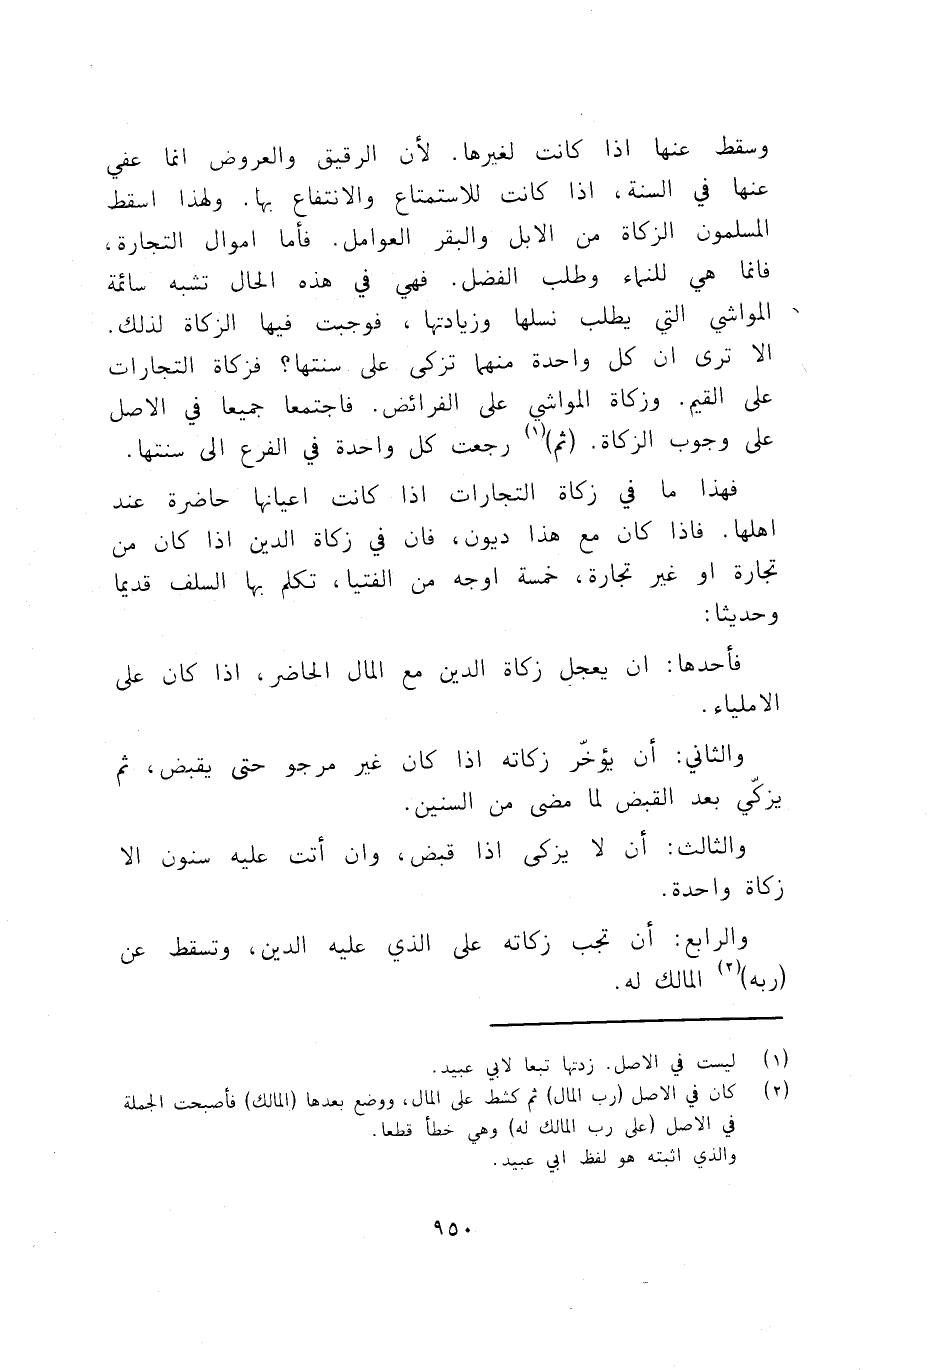 وسقط عنها اذا كانت لغيرها. لأن الرقيق والعروض انما عفي
عنها في السنة، اذا كانت للاستمتاع والانتفاع بها. ولهذا اسقط
المسلمون الزكاة من الابل والبقر العوامل. فأما اموال التجارة،
فانما هي للنماء وطلب الفضل. فهي في هذه الحال تشبه سائمة
المواشي التي يطلب نسلها وزيادتها، فوجبت فيها الزكاة لذلك.
الا ترى ان كل واحدة منهما تزكى على سنتها؟ فزكاة التجارات
على القيم. وزكاة المواشي على الفرائض. فاجتمعا جميعا في الاصل
على وجوب الزكاة. (ثم)(١) رجعت كل واحدة في الفرع الى سنتها.
فهذا ما في زكاة التجارات اذا كانت اعيانها حاضرة عند
اهلها. فاذا كان مع هذا ديون، فان في زكاة الدين اذا كان من
تجارة او غير تجارة، خمسة اوجه من الفتيا، تكلم بها السلف قديما
وحديثا:
فأحدها: ان يعجل زكاة الدين مع المال الحاضر، اذا كان على
الاملياء.
والثاني: أن يؤخّر زكاته اذا كان غير مرجو حتى يقبض، ثم
يزكّي بعد القبض لما مضى من السنين.
والثالث: أن لا يزكى اذا قبض، وان أتت عليه سنون الا
زكاة واحدة.
والرابع: أن تجب زكاته على الذي عليه الدين، وتسقط عن
(ربه)(٢) المالك له.
(١) ليست في الاصل. زدتها تبعا لابي عبيد.
(٢) كان في الاصل (رب المال) ثم كشط على المال، ووضع بعدها (المالك) فأصبحت الجملة
في الاصل (على رب المالك له) وهي خطأ قطعا.
والذي اثبته هو لفظ ابي عبيد.
٩٥٠